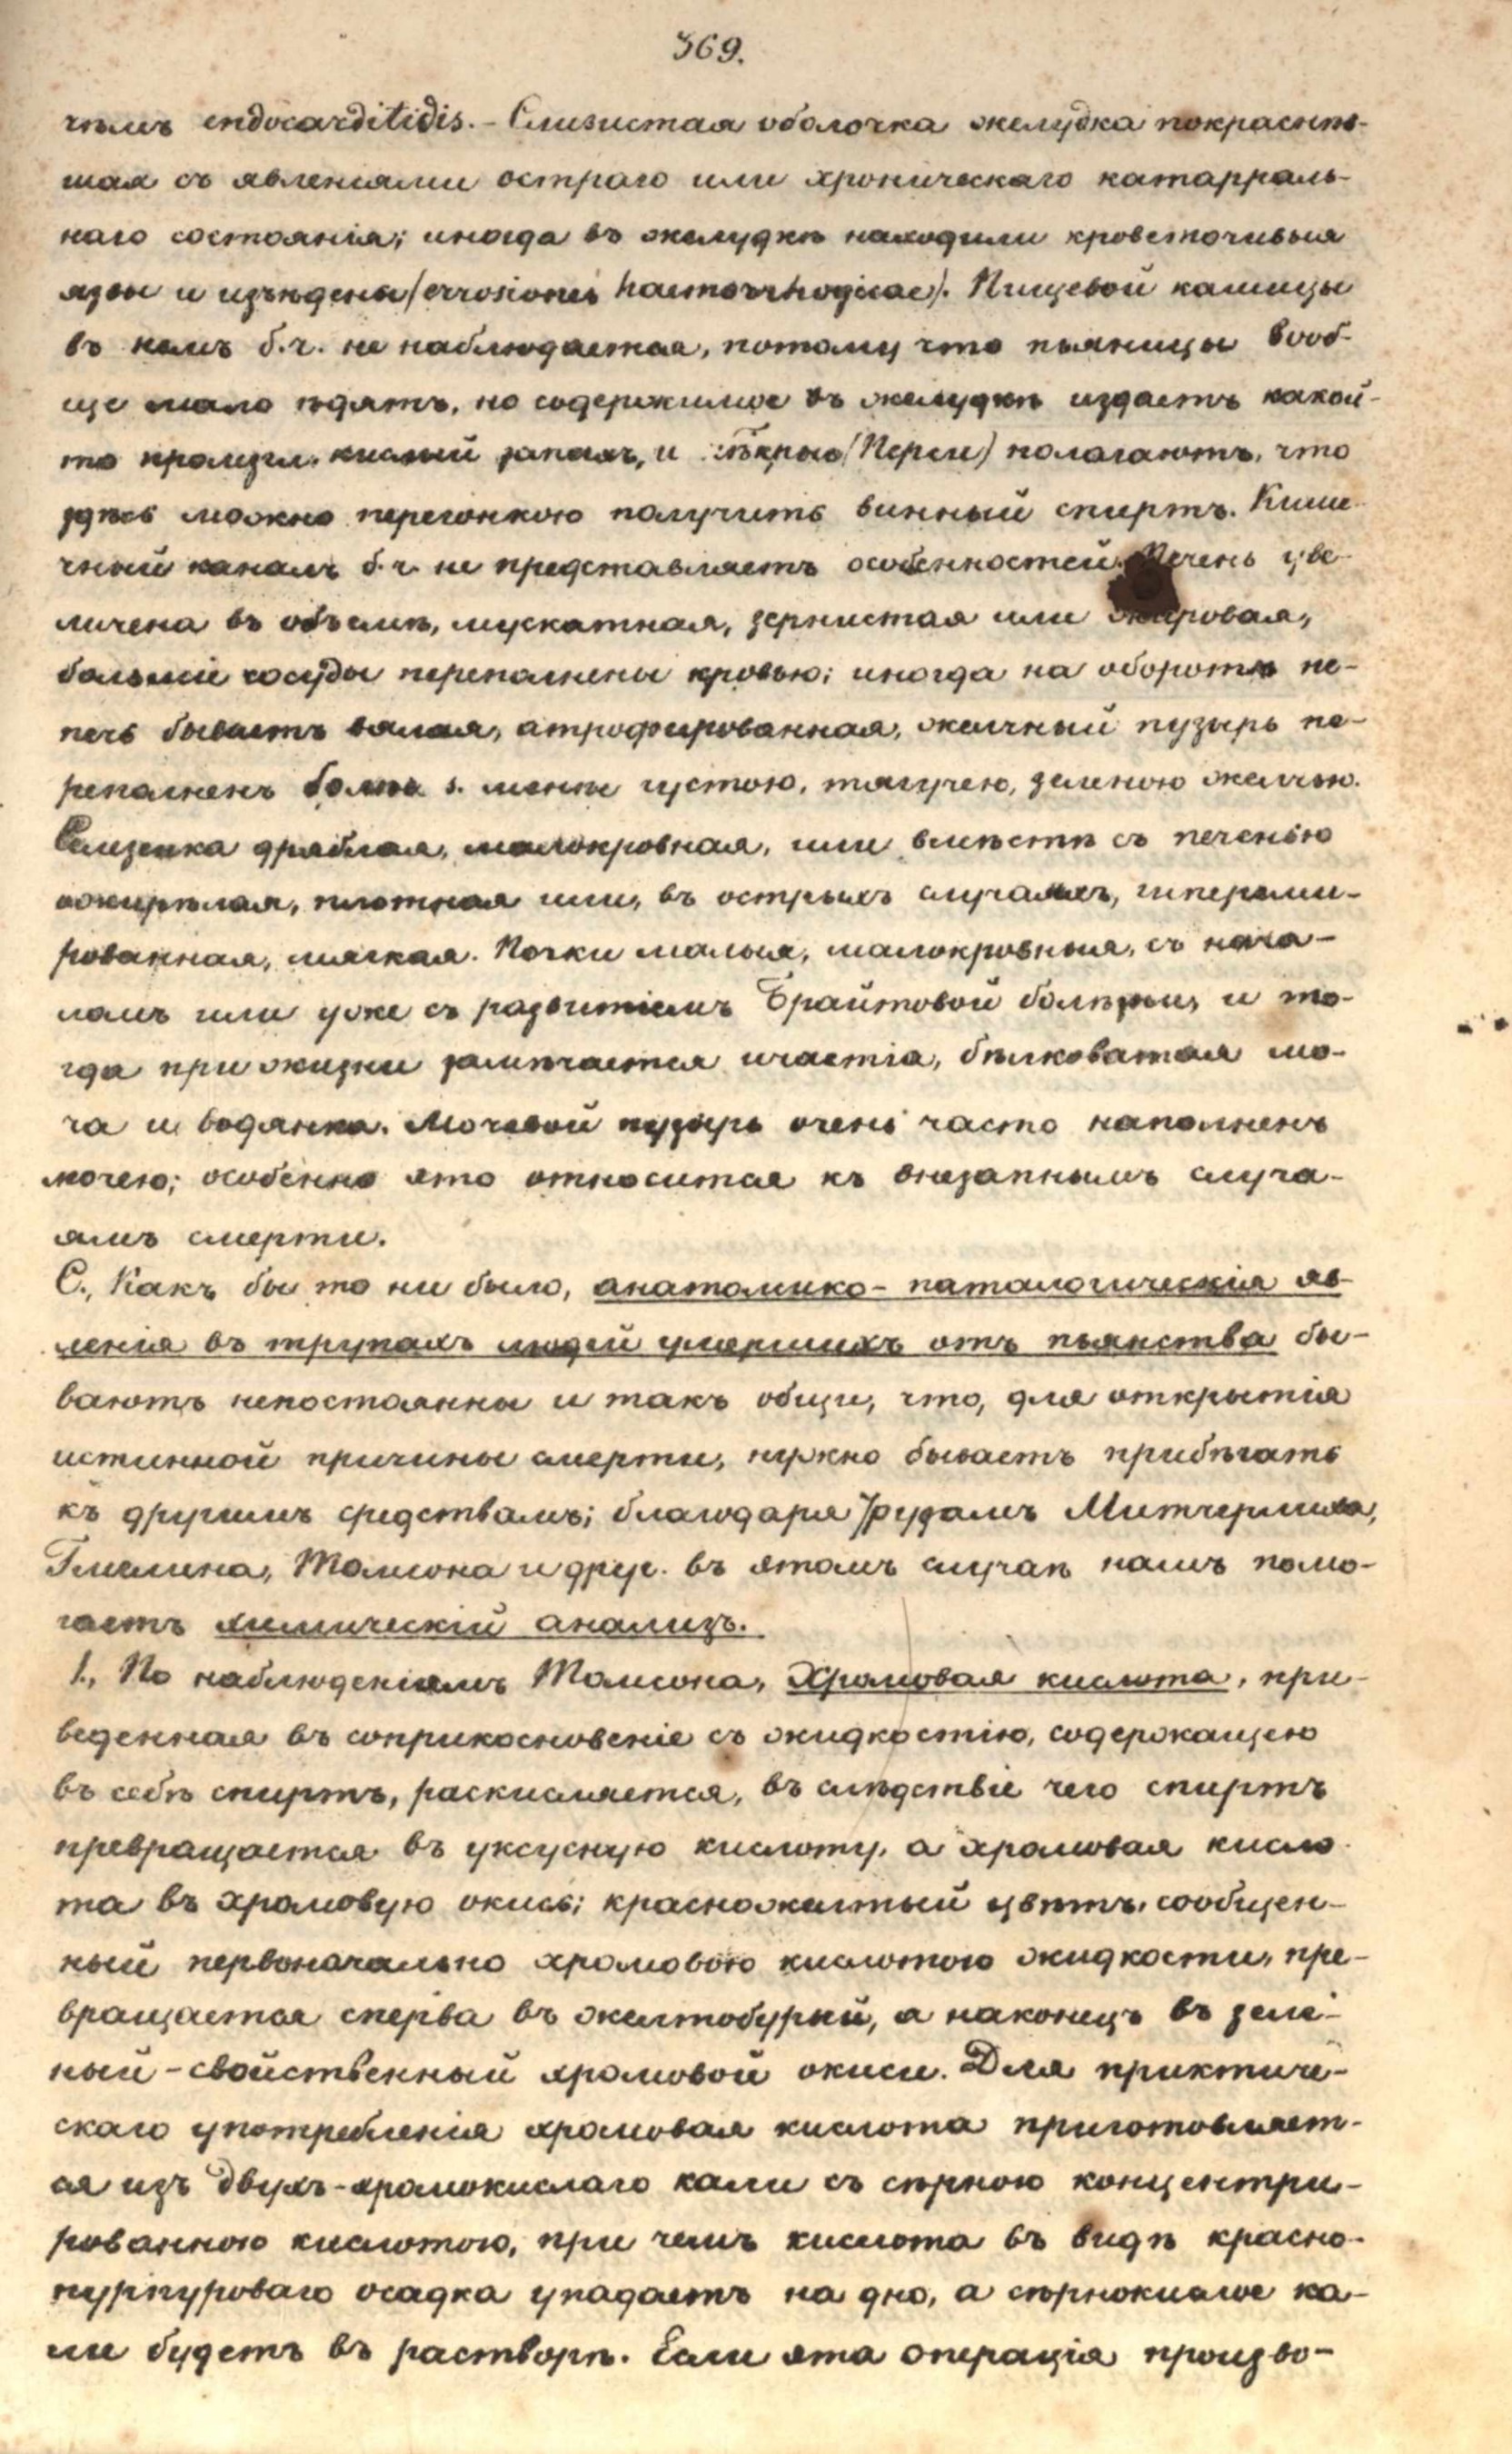 369.
чѣмъ endocarditidis. - Слизистая оболочка желудка покраснѣв-
шая съ явленіями остраго или хроническаго катарраль-
наго состоянія; иногда въ желудкѣ находили кровоточивыя
язвы и изъѣдены (errosiones haemorrhogicae). Пищевой кашицы
въ немъ б.ч. не наблюдается, потому что пьяницы вооб-
ще мало ѣдятъ, но содержимое въ желудкѣ издаетъ какой-
то кислый запахъ, и (Перси) полагаютъ, что
здѣсь можно перегонкою получить винный спиртъ. Кише-
чный каналъ б.ч. не представляетъ особенностей. Печень уве-
личена въ объемѣ, мускатная, зернистая или жировая,
большіе сосуды переполнены кровью; иногда на оборотъ пе-
чень бываетъ вялая, атрофированная, желчный пузырь пе-
реполненъ болѣе s. менѣе густою, тягучею, зеленою желчью.
Селезенка дряблая, малокровная, или вмѣстѣ съ печенью
ожирѣлая, плотная или, въ острыхъ случаяхъ, гипереми-
рованная, мягкая. Почки малыя, малокровныя, съ нача-
ломъ или уже съ развитіемъ Брайтовой болѣзни, и то-
гда при жизни замѣчается бѣлковатая мо-
ча и водянка. Мочевой пузырь очень часто наполненъ
мочею; особенно ято относится къ внезапнымъ случа-
ямъ смерти.
С., Какъ бы то ни было, анатомико - паталогическія яв-
ленія въ трупахъ людей умершихъ отъ пьянства бы-
ваютъ непостоянны и такъ общи, что, для открытія
истинной причины смерти, нужно бываетъ прибѣгать
къ другимъ средствамъ; благодаря трудамъ Митчерлиха,
Гмелина, Томсона и друг. въ ятомъ случаѣ намъ помо-
гаетъ химическій анализъ.
1., По наблюденіямъ Томсона, хромовая кислота, при-
веденная въ соприкосновеніе съ жидкостію, содержащею
въ себѣ спиртъ, раскисляется, въ слѣдствіе чего спиртъ
превращается въ уксусную кислоту, а хромовая кисло-
та въ хромовую окись; красножелтый цвѣтъ, сообщен-
ный первоначально хромовою кислотою жидкости, пре-
вращается сперва въ желтобурый, а наконецъ въ зеле-
ный - свойственный хромовой окиси. Для приктиче-
скаго употребленія хромовая кислота приготовляет-
ся изъ двухъ-хромокислаго кали съ сѣрною концентри-
рованною кислотою, при чемъ кислота въ видѣ красно-
пурпуроваго осадка упадаетъ на дно, а сѣрнокислое ка-
ли будетъ въ растворѣ. Если ята операція произво-